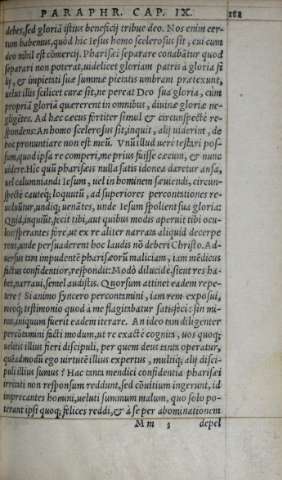 PARAPHR. CAP. IX.
debes, sed gloriã istius beneficij tribue deo. Nos enim cer-
tum habemus, quòd hic Iesus homo scelerosus sit, cui cum
deo nihil est cõmercij. Pharisæi separare conabãtur quod
separari non poterat, videlicet gloriam patris à gloria fi
lij, & impietati suæ summæ pietatis umbram prætexunt,
uelut illis scilicet curæ sit, ne pereat Deo sua gloria, cùm
propriã gloriã quærerent in omnibus, diuinæ gloriæ ne-
gligẽtes. Ad hæc cæcus fortiter simul & circunspectè re-
spondens: An homo scelerosus sit, inquit, alij uiderint, de
hoc pronuntiare non est meũ. Vnũ illud uerè testari pos-
sum, quod ipsa re comperi, me prius fuisse cæcum, & nunc
uidere. Hic quũ pharisæis nulla satis idonea daretur ansa,
uel calumniandi Iesum, uel in hominem sæuiendi, circun-
spectè cauteq; loquutũ, ad superiores percontationes re-
uoluũtur, undiq; uenãtes, unde Iesum spolient sua gloria:
Quid, inquiũt, fecit tibi, aut quibus modis aperuit tibi ocu-
los? sperantes fore, ut ex re aliter narrata aliquid decerpe
rent, unde persuaderent hoc laudis nõ deberi Christo. Ad-
uersus tam impudentẽ pharisæorũ maliciam, iam mẽdicus
factus confidentior, respondit: Modò dilucidè, sicut res ha-
bet, narraui, semel audistis. Quorsum attinet eadem repe-
tere? Si animo syncero percontamini, iam rem exposui,
meoq; testimonio quod à me flagitabatur satisfeci: sin mi-
nus, iniquum fuerit eadem iterare. An ideo tam diligenter
percõtamini facti modum, ut re exactè cognita, uos quoq;
uelitis illius fieri discipuli, per quem deus tanta operatur,
quẽadmodũ ego uirtutẽ illius expertus, multiq; alij disci-
puli illius sumus? Hac tanta mendici confidentia pharisæi
irritati non responsum reddunt, sed cõuitium ingerunt, id
imprecantes homini, ueluti summum malum, quo solo po-
terant ipsi quoq; felices reddi, & à se per abominationem
Mm 3 depel